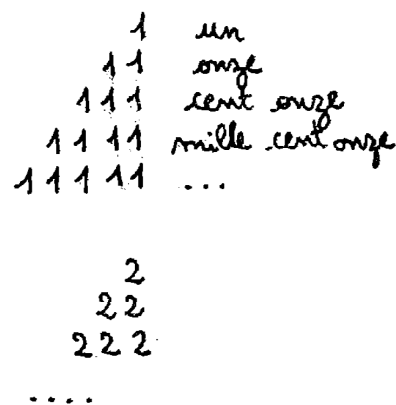 1 un
11 onze
111 cent onze
1111 mille cent onze
11111 ...
2
22
222
....